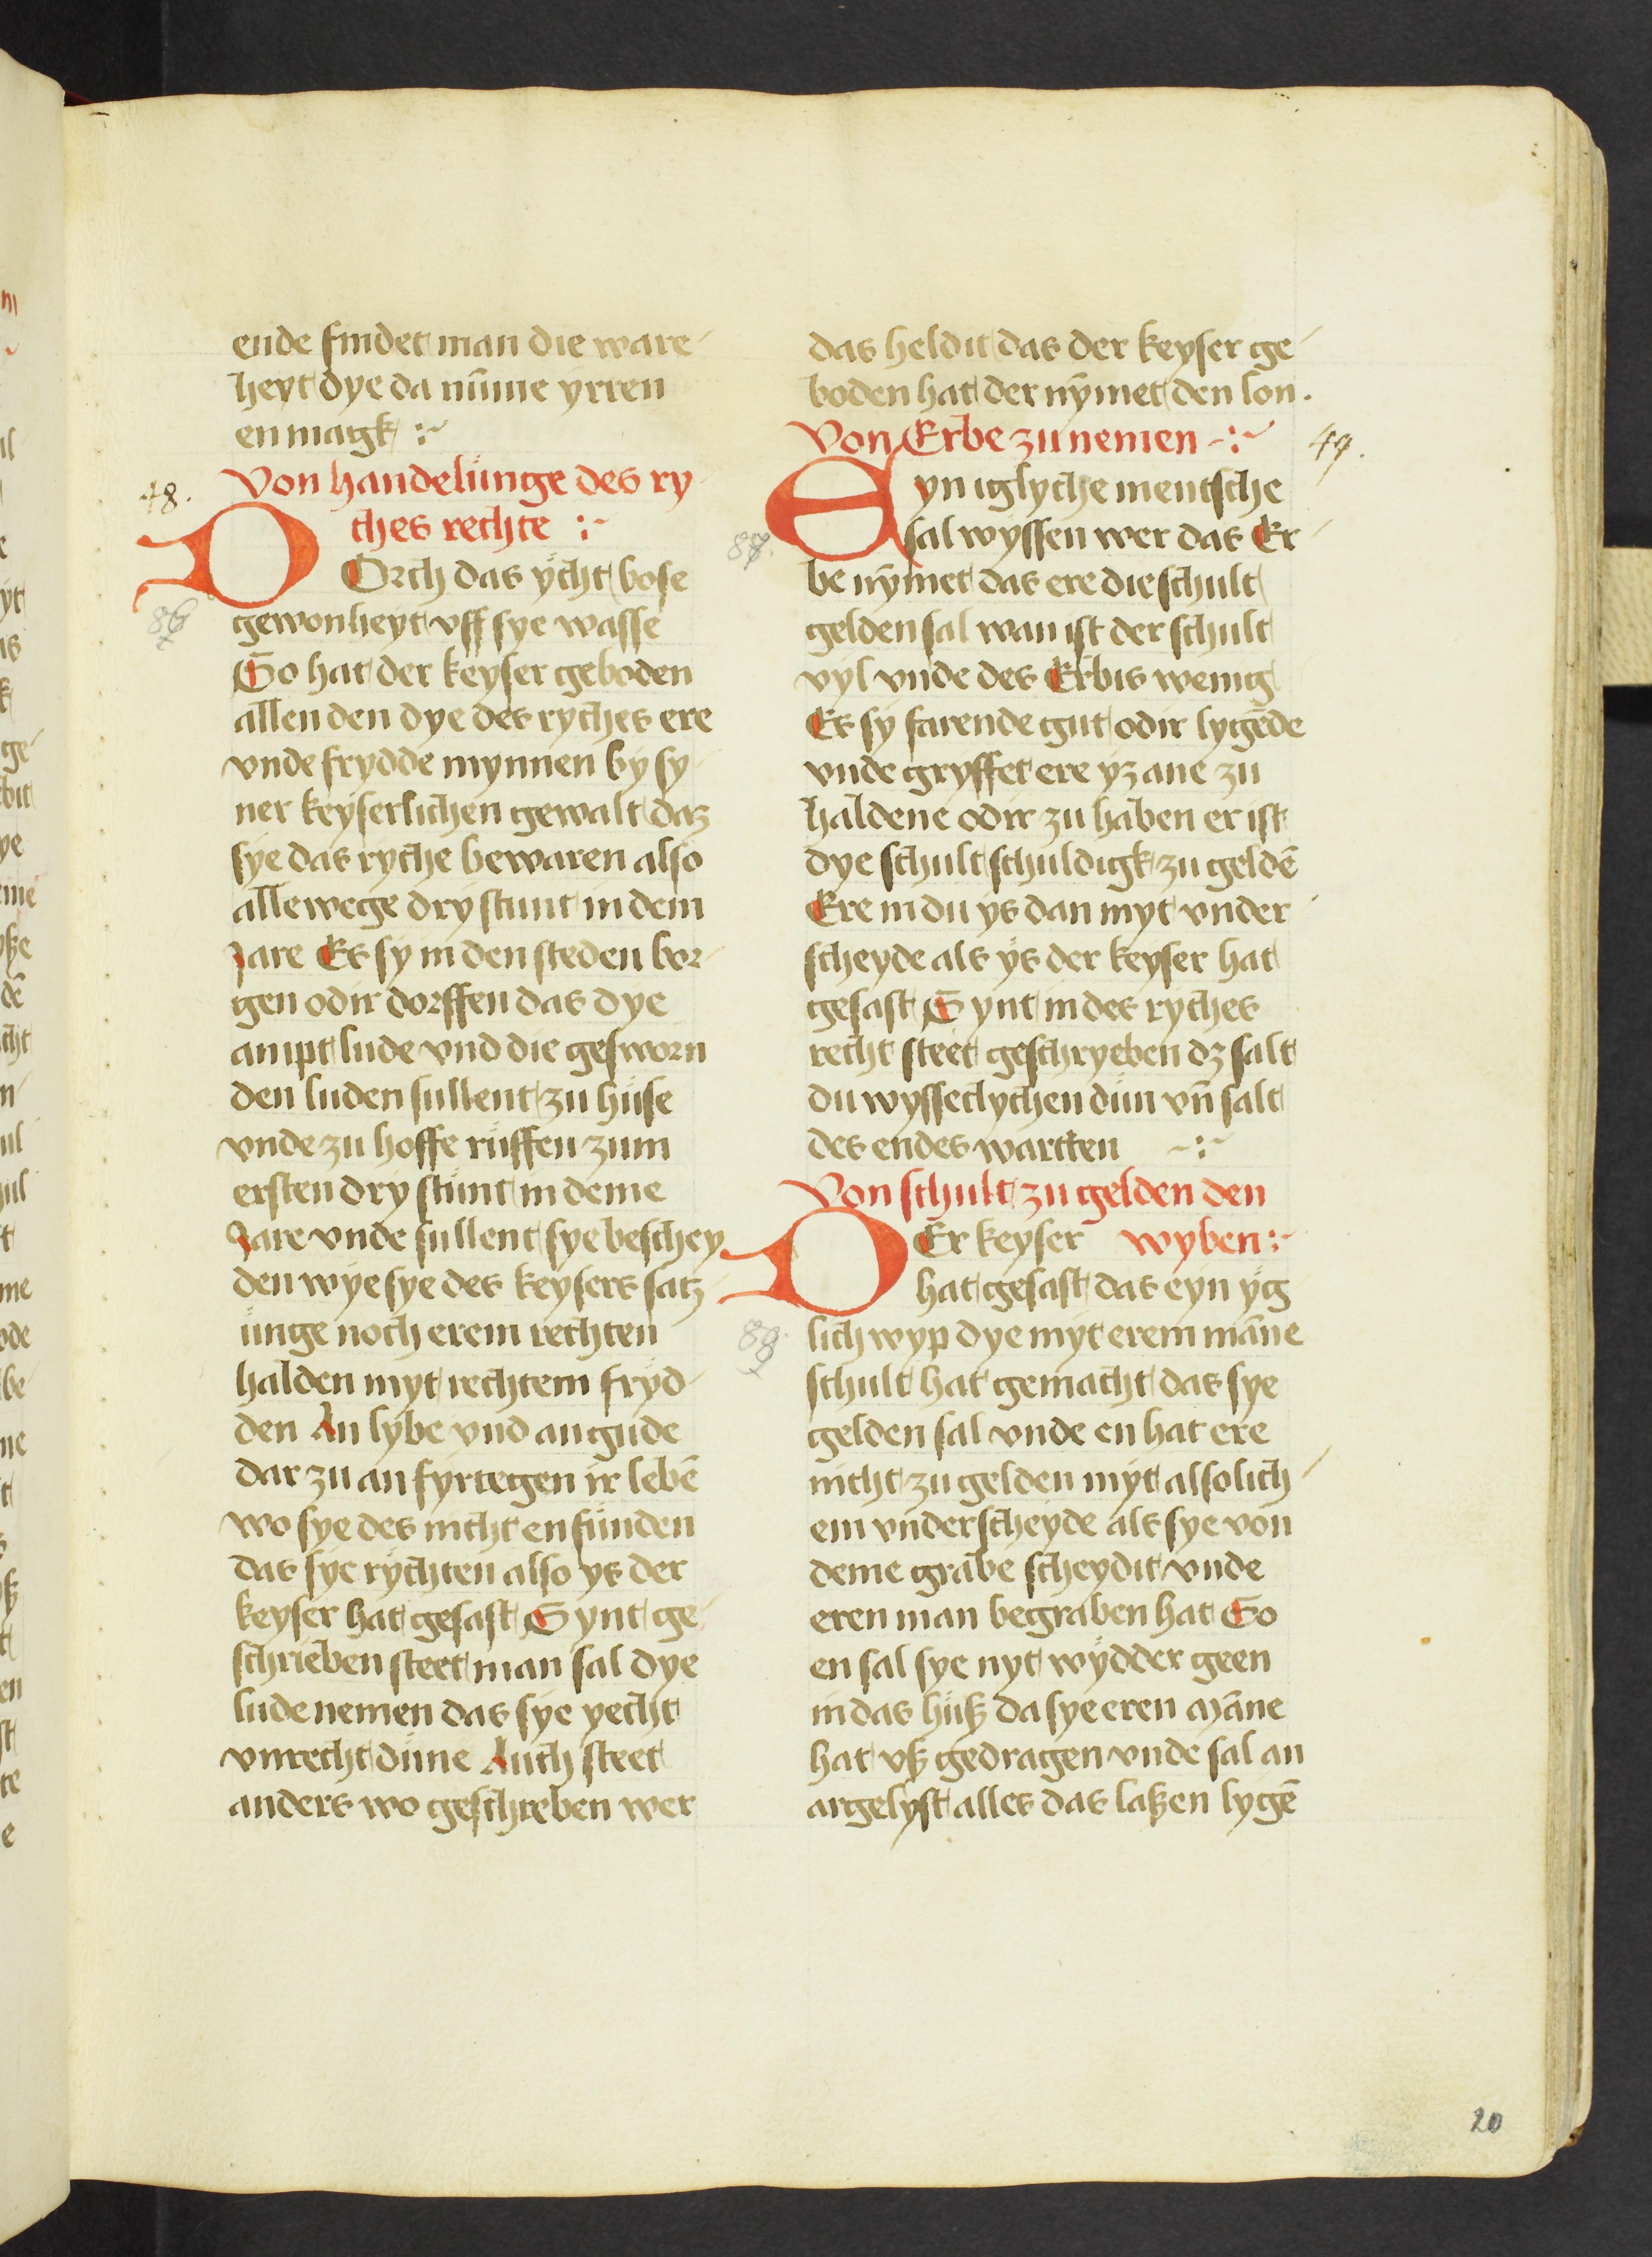 ende findet man die ware
heyt dye da nūme yrren
en magk :~
48. Von handelunge des ry
ches rechte :~
DOrch das ycht bose
gewonheyt vff sye wasse
So hat der keyser geboden
allen den dye des ryches ere
vnde frydde mynnen by sy
ner keyserlichen gewalt daz
sye das ryche bewaren also
allewege dry stunt in dem
Jare Es sy in den steden bor-
gen odir dorffen das dye
ampt lude vnd die gesworn
den luden sullent zu huse
vnde zu hoffe ruffen zum
ersten dry stunt in deme
Jare vnde sullent sye beschey
den wye sye des keysers satz
unge noch erem rechten
halden myt rechtem fryd
den An lybe vnd an gude
dar zu an fyrtegen ir lebē
wo sye des nicht en funden
das sye rychten also ys der
keyser hat gesast Synt ge
schrieben steet man sal dye
lude nemen das sye yecht
vnrecht dune Auch steet
anders wo geschreben wer
das heldit das der keyser ge
boden hat der nȳmet den lon.
Von Erbe zu nemen ~:~ 49.
Eyn iglyche mentsche
sal wyssen wer das Er
88.
be nȳmet das ere die schult
gelden sal wan ist der schult
vyl vnde des Erbis wenig
Es sy farende gut odir lygēde
vnde gryffet ere yz ane zu
haldene odir zu haben er ist
dye schult schuldigk zu geldē
Ere in du ys dan myt vnder
scheyde als ys der keyser hat
gesast Synt in des ryches
recht steet geschryeben dz salt
du wysseclychen dun vn̄ salt
des endes wartten ~:~
Von schult zu gelden den
DEr keyser wyben :~
hat gesast das eyn yg
89.
lich wyp dye myt erem māne
schult hat gemacht das sye
gelden sal vnde en hat ere
nicht zu gelden myt alsolich
em vnderscheyde als sye von
deme grabe scheydit vnde
eren man begraben hat So
en sal sye nyt wydder geen
in das huß da sye eren māne
hat vß gedragen vnde sal an
argelyst alles das laßen lygē
20